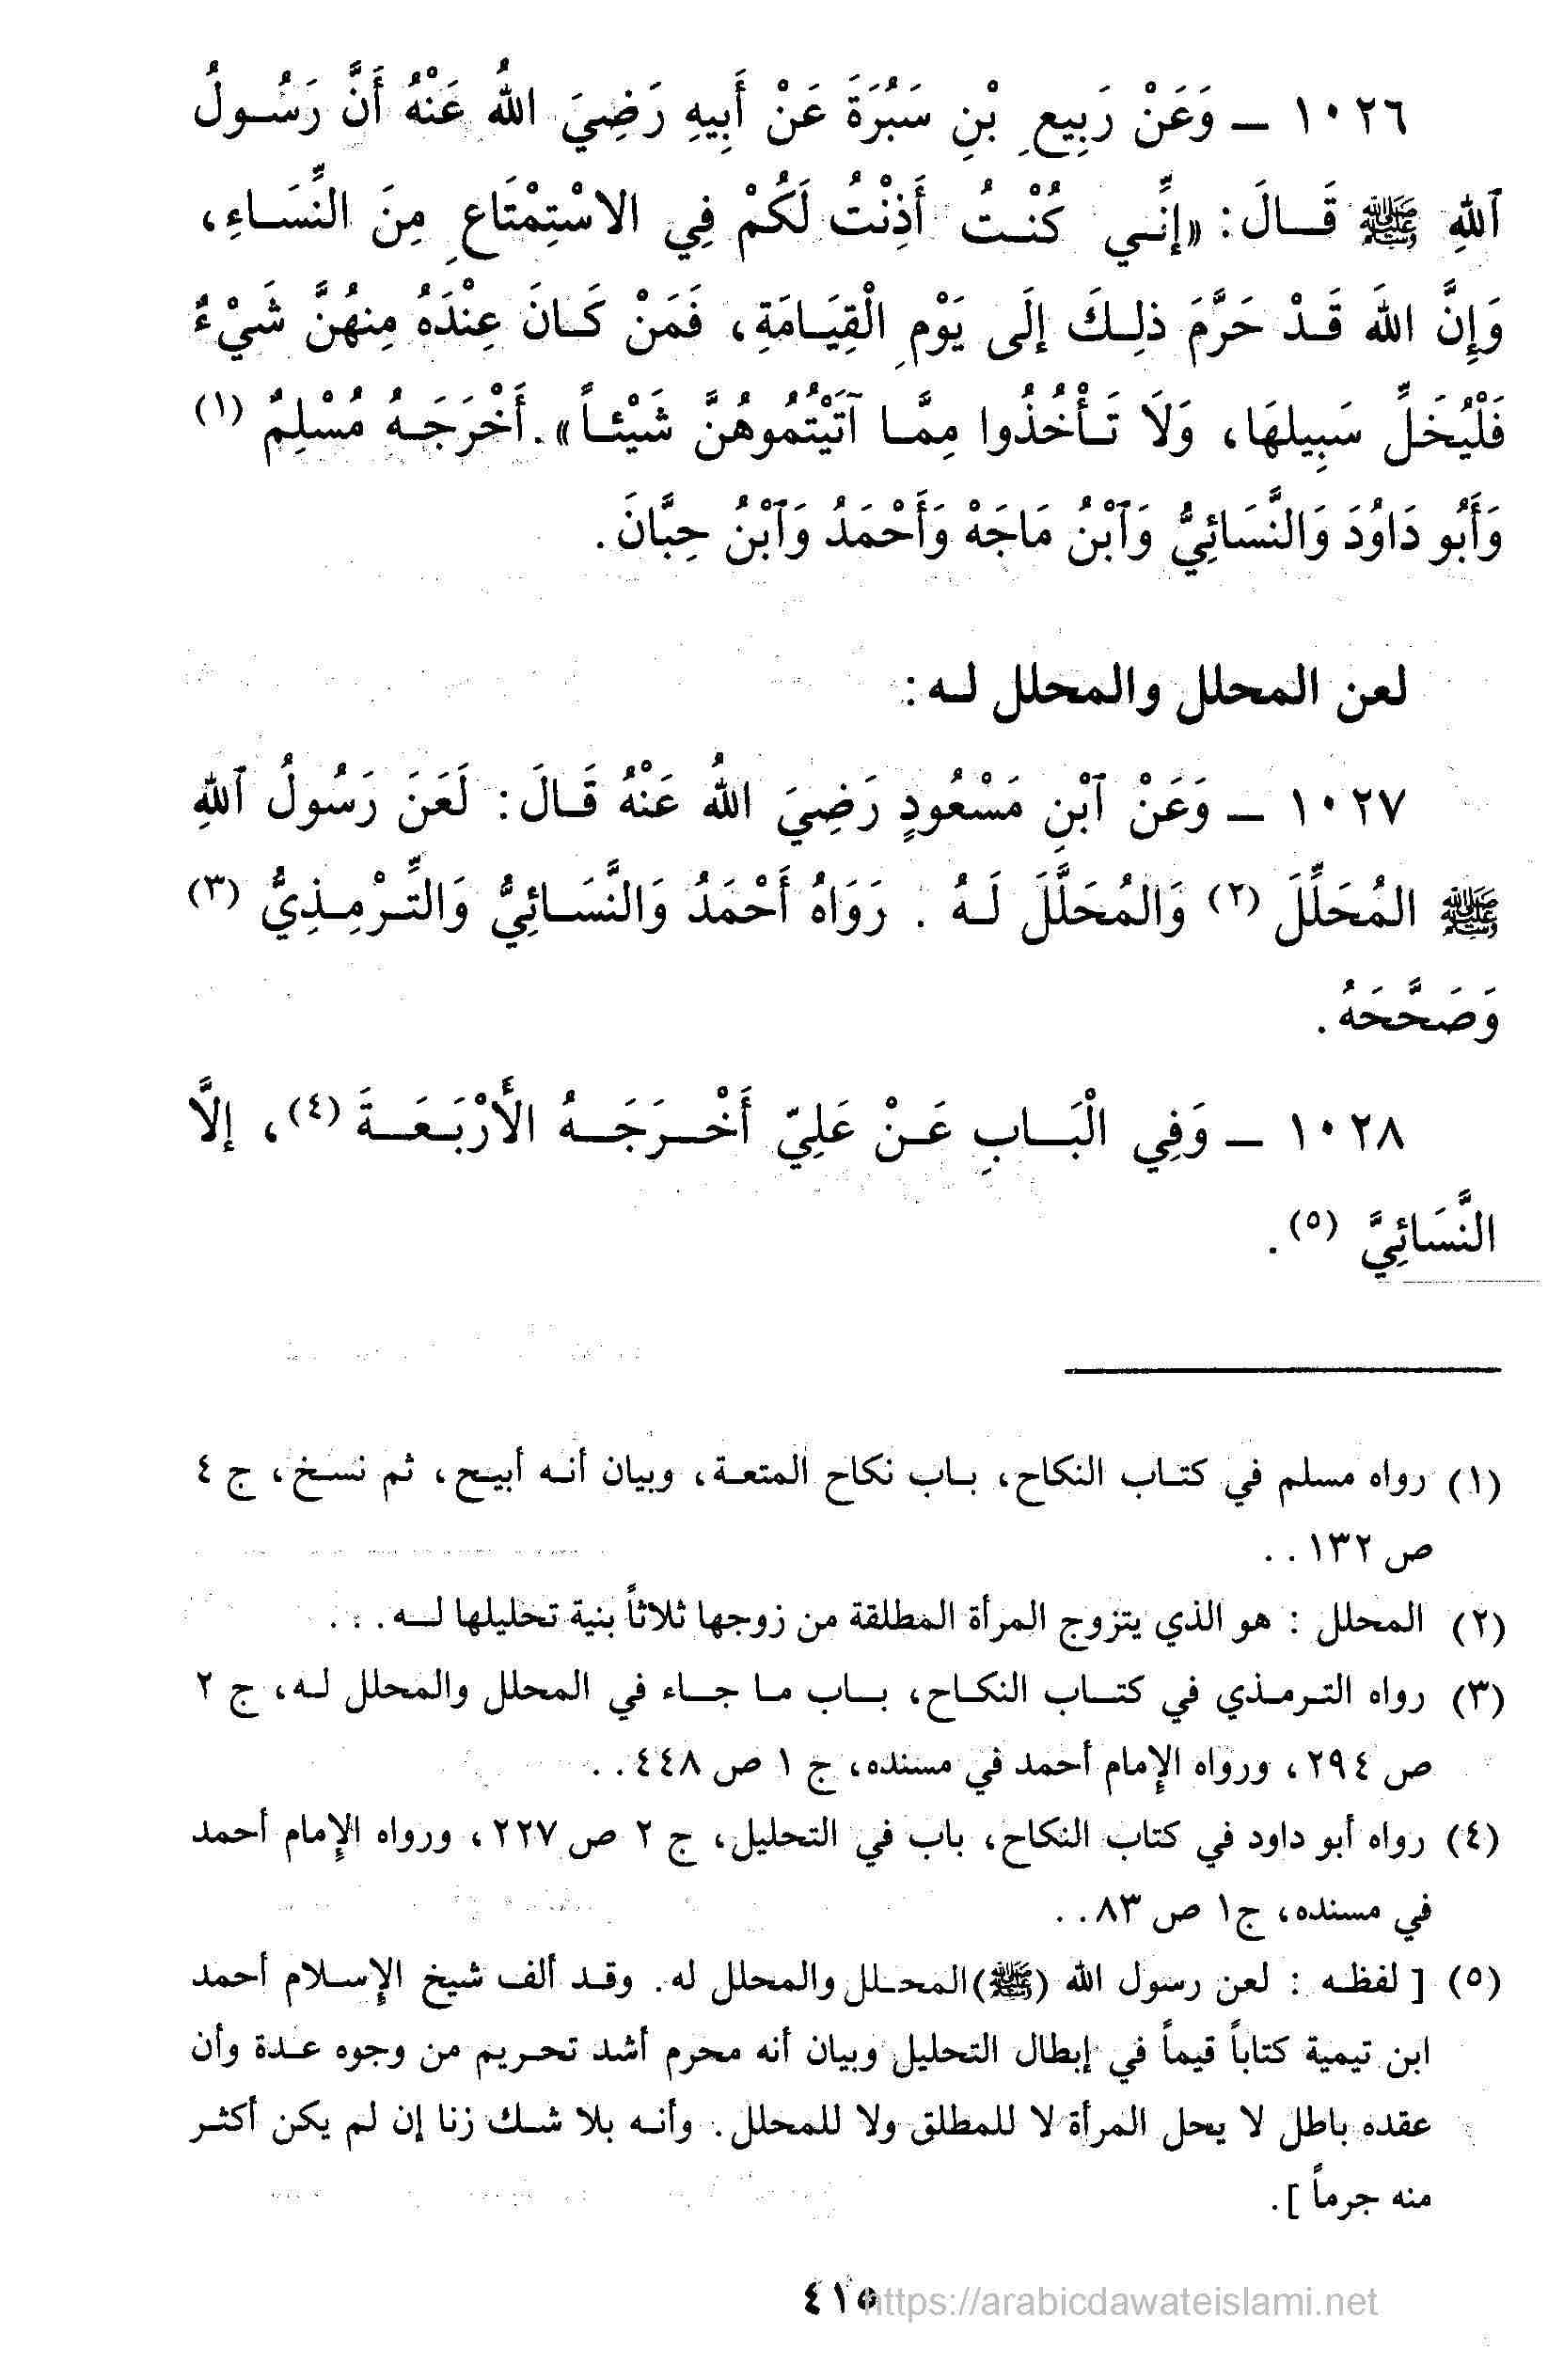 ١٠٢٦ ـ وَعَنْ رَبِيعِ بْنِ سَبُرَةَ عَنْ أَبِيهِ رَضِيَ اللهُ عَنْهُ أَنَّ رَسُولُ
ٱللهِ ﷺ قَالَ: «إِنِّي كُنْتُ أَذِنْتُ لَكُمْ فِي الاسْتِمْتَاعِ مِنَ النِّسَاءِ،
وَإِنَّ اللهَ قَدْ حَرَّمَ ذلِكَ إلَى يَوْمِ الْقِيَامَةِ، فَمَنْ كَانَ عِنْدَهُ مِنهُنَّ شَيْءٌ
فَلْيُخَلِّ سَبِيلهَا، وَلَا تَأْخُذُوا مِمَّا آتَيْتُمُوهُنَّ شَيْئاً». أَخْرَجَهُ مُسْلِمٌ (١)
وَأَبُو دَاوُدَ وَالنَّسَائِيُّ وَٱبْنُ مَاجَهْ وَأَحْمَدُ وَٱبْنُ حِبَّانَ.
لعن المحلل والمحلل له:
١٠٢٧ ـ وَعَنْ ٱبْنِ مَسْعُودٍ رَضِيَ اللهُ عَنْهُ قَالَ: لَعَنَ رَسُولُ ٱللهِ
ﷺ المُحَلِّلَ (٢) وَالمُحَلَّلَ لَهُ . رَوَاهُ أَحْمَدُ وَالنَّسَائِيُّ وَالتِّرْمِذِيُّ (٣)
وَصَحَّحَهُ.
١٠٢٨ ـ وَفِي الْبَابِ عَنْ عَلِيّ أَخْرَجَهُ الأَرْبَعَةَ (٤)، إلَّا
النَّسَائِيَّ (٥).
(١) رواه مسلم في كتاب النكاح، باب نكاح المتعة، وبيان أنه أبيح، ثم نسخ، ج ٤
ص ١٣٢..
(٢) المحلل : هو الذي يتزوج المرأة المطلقة من زوجها ثلاثاً بنية تحليلها له...
(٣) رواه الترمذي في كتاب النكاح، باب ما جاء في المحلل والمحلل له، ج ٢
ص ٢٩٤، ورواه الإمام أحمد في مسنده، ج ١ ص ٤٤٨..
(٤) رواه أبو داود في كتاب النكاح، باب في التحليل، ج ٢ ص ٢٢٧، ورواه الإمام أحمد
في مسنده، ج١ ص ٨٣..
(٥) [ لفظه : لعن رسول الله (ﷺ)المحلل والمحلل له. وقد ألف شيخ الإسلام أحمد
ابن تيمية كتاباً قيماً في إبطال التحليل وبيان أنه محرم أشد تحريم من وجوه عدة وأن
عقده باطل لا يحل المرأة لا للمطلق ولا للمحلل. وأنه بلا شك زنا إن لم يكن أكثر
منه جرماً ].
٤١٥
https://arabicdawateislami.net